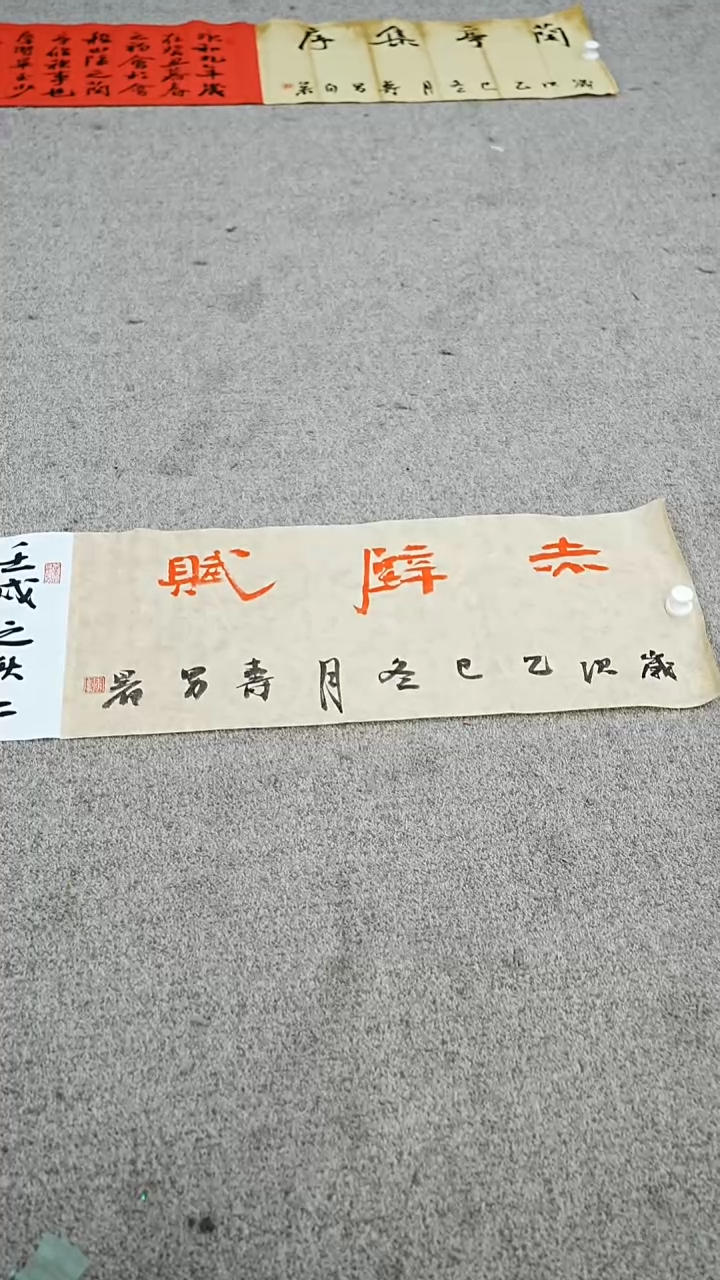 蘭亭集序
歲次乙巳冬月壽男自署
永和九年歲
在癸丑暮春
之初會於會
稽山陰之蘭
亭脩禊事也
賢畢至少
赤壁賦
歲次乙巳冬月壽男署
壬戌之秋